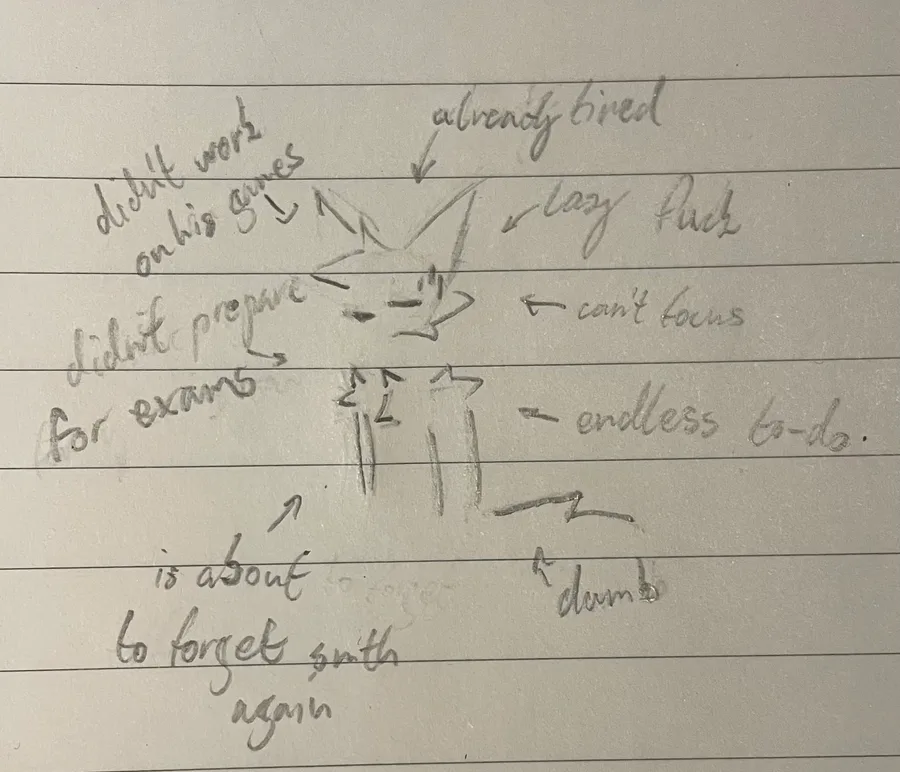 already tired
didn't work
on his games
lazy fuck
didn't prepare
for exams
can't focus
endless to-do.
is about
to forget smth
again
dumb